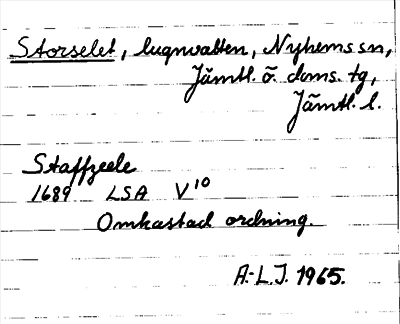 Storselet, lugnvatten, Nyhems sn,
Jämtl. ö. doms. tg,
Jämtl. l.
Staffzeele
1689 LSA V10
Omkastad ordning.
A.-L.J. 1965.